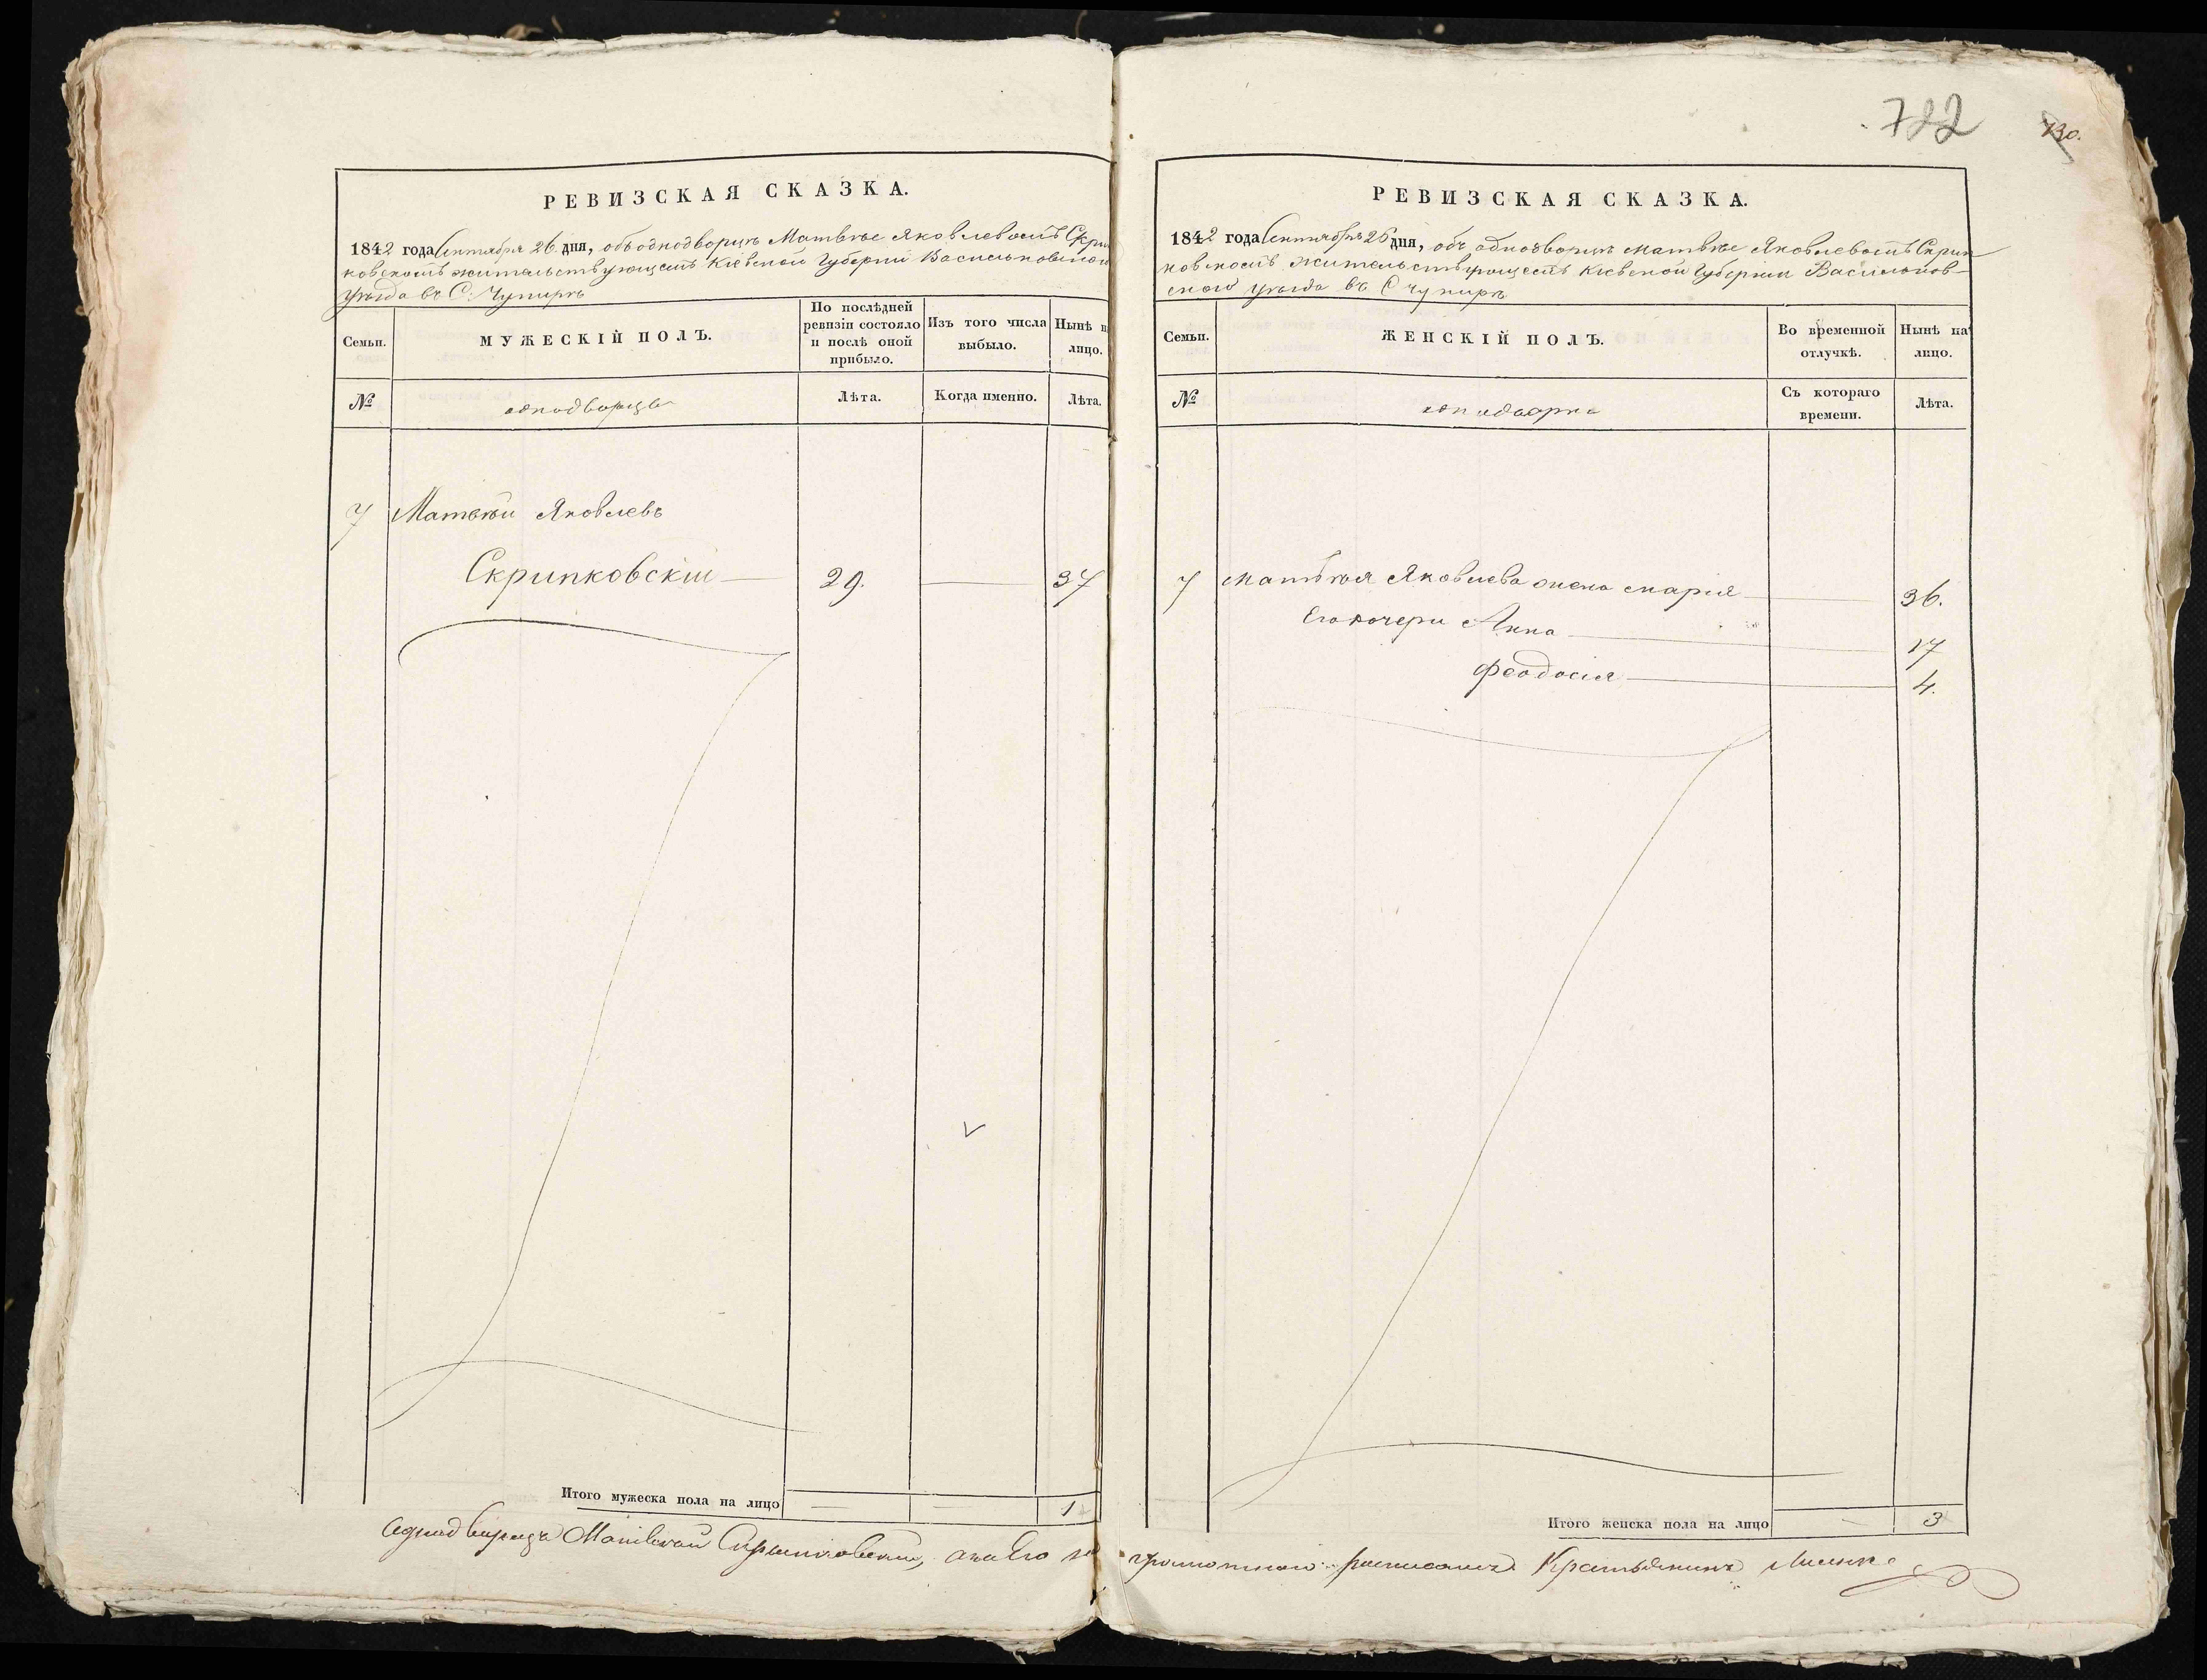 РЕВИЗСКАЯ СКАЗКА.
1842 года Сентября 26 дня, объ однодворцѣ Матвѣе Яковлевомъ Скрип
ковскомъ жительствующемъ Кіевской Губерніи Васильковскаго
уѣзда въ С. Чупирѣ
Семьи.
МУЖЕСКІЙ ПОЛЪ.
По послѣдней ревизіи состояло и послѣ оной прибыло.
Изъ того числа выбыло.
Нынѣ на лицо.
№
однодворцы
Лѣта.
Когда именно.
Лѣта.
7 Матвѣй Яковлевъ
Скрипковскій 29. 37
Итого мужеска пола на лицо 1
722
730.
РЕВИЗСКАЯ СКАЗКА.
1842 года Сентября 26 дня, объ однодворцѣ Матвѣе Яковлевомъ Скрип
ковскомъ жительствующемъ Кіевской Губерніи Васильков-
скаго уѣзда въ С Чупирѣ
Семьи.
ЖЕНСКІЙ ПОЛЪ.
Во временной отлучкѣ.
Нынѣ на лицо.
№
однодворки
Съ котораго времени.
Лѣта.
7 Матвѣя Яковлева жена Марія 36.
Его дочери Анна 17
Феодосія 4.
Итого женска пола на лицо 3
однодворецъ Матвѣй Скрипковскій, а за Его не грамотного росписался Крестьянинъ